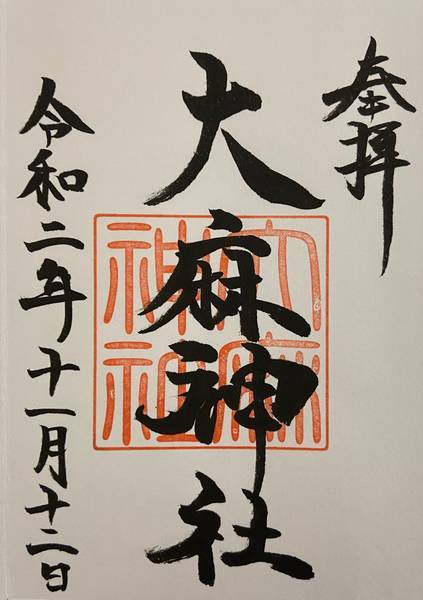 奉拝
大麻神社
大麻
神社
令和二年十一月十二日